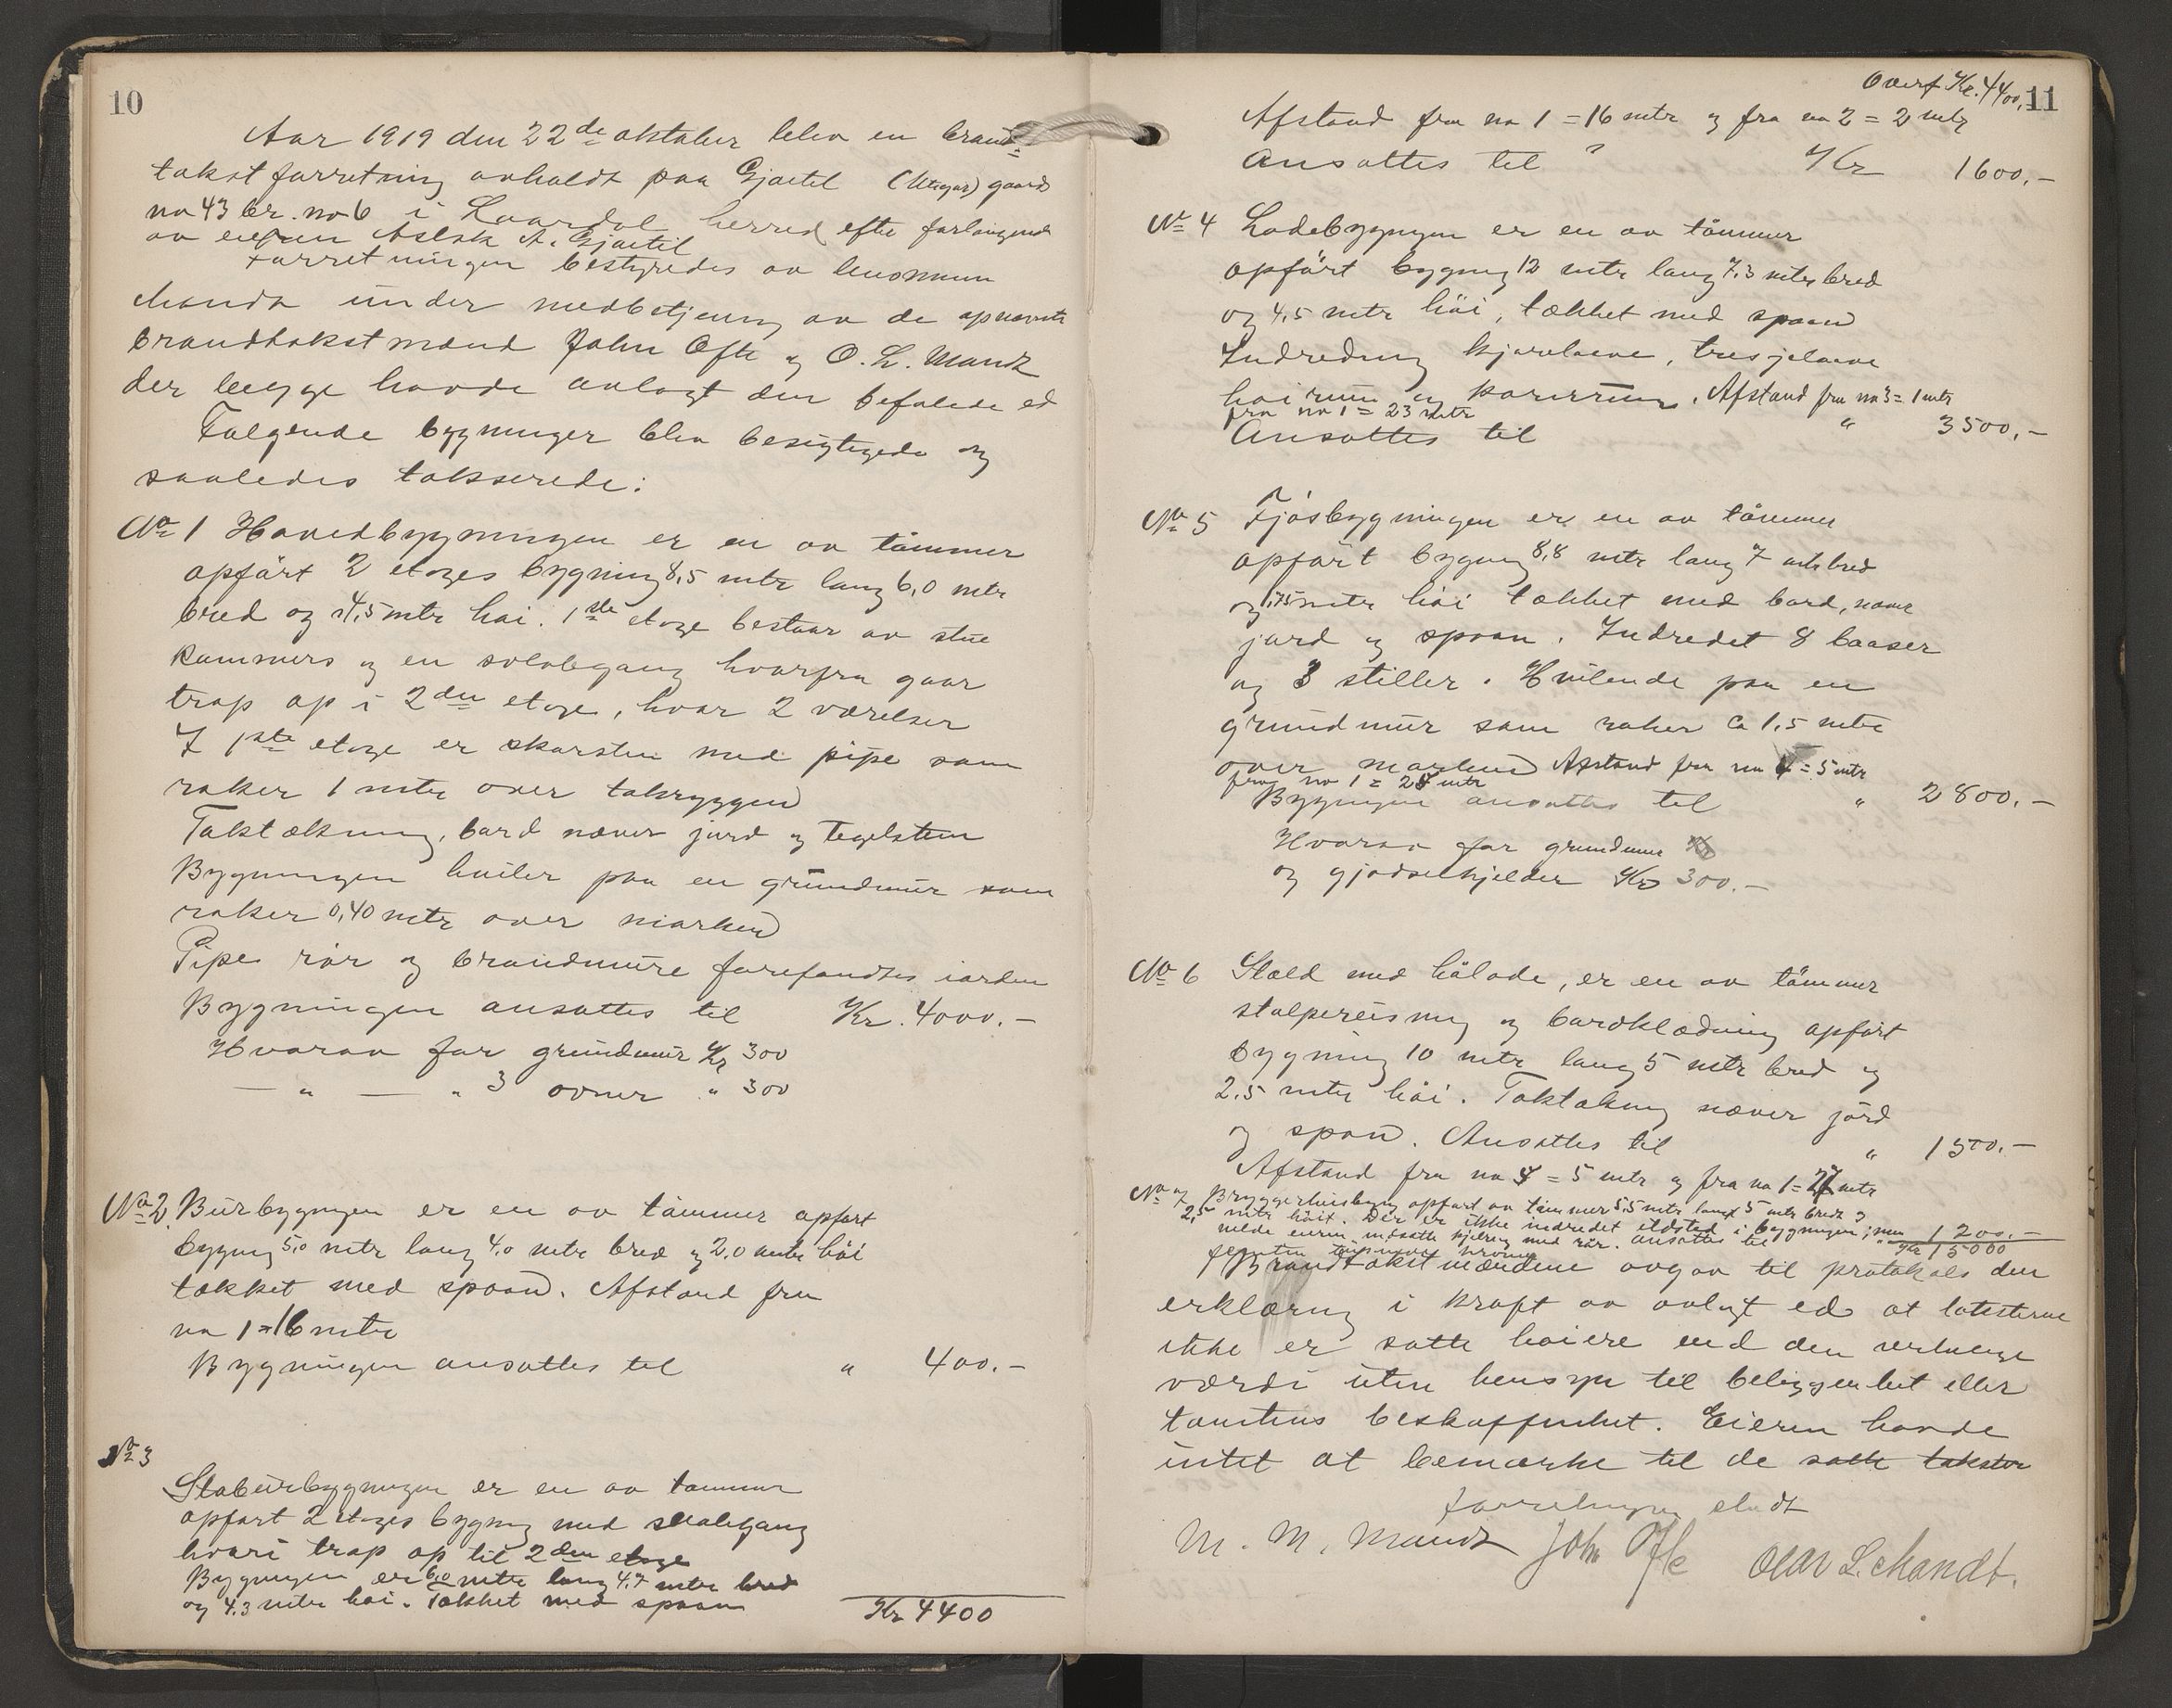 10
Aar 1919 den 22de oktober blev en brand=
takstforretning avholdt paa Gjøitil gaards
no 43 br. no 6 i Laardal herred efter forlangende
av eieren Aslak A. Gjøitil
Forretningen bestyredes av lensmann
Mandt under medbetjening av de opnævnte
brandtakstmænd John Ofte og O. L. Mandt
der begge havde avlagt den befalede ed
Følgende bygninger blev besigtigede og
saaledes takserede:
No 1 Hovedbygningen er en av tømmer
opført 2 etages bygning 8,5 mtr lang 6,0 mtr
bred og 4,5 mtr høi. 1ste etage bestaar av stue
kammers og en svalegang hvorfra gaar
trap op i 2den etage, hvor 2 værelser
I 1ste etage er skorsten med pipe som
raker 1 mtr over takryggen
Taktækning, bord næver jord og Tegelsten
Bygningen hviler paa en grundmur som
raker 0,40 mtr over marken
Pipe rør og brandmure forefandtes iorden
Bygningen ansattes til Kr. 4000.-
Hvorav for grundmur Kr 300
— " — " 3 ovner " 300
No 2 Burbygningen er en av tømmer opført
bygning 5,0 mtr lang 4,0 mtr bred og 2,0 mtr høi
tækket med spaan. Afstand fra
no 1 = 16 mtr
Bygningen ansattes til " 400.-
No 3
Staburbygningen er en av tømmer
opført 2 etages bygning med svalegang
hvori trap op til 2den etage
Bygningen er 6,0 mtr lang 4,7 mtr bred
og 4.3 mtr høi. Tækket med spaan
Kr 4400
Overf Kr. 4400, 11
Afstand fra no 1 = 16 mtr og fra no 2 = 2 mtr
Ansattes til Kr 1600.-
No 4 Ladebygningen er en av tømmer
opført bygning 12 mtr lang 7,3 mtr bred
og 4,5 mtr høi, tækket med spaan
Indredning kjørelaave, treskjelaave
høirum og kornrum. Afstand fra no 3 = 1 mtr
fra no 1 = 23 mtr
Ansattes til " 3500.-
No 5 Fjøsbygningen er en av tømmer
opført bygning 8,8 mtr lang 7 mtr bred
og 1,75 mtr høi tækket med bord, næver
jord og spaan. Indredet 8 baaser
og 3 stiller. Hvilende paa en
grundmur som raker ca 1,5 mtr
over marken Afstand fra no 4 = 5 mtr
fra no 1 = 28 mtr
Bygningen ansattes til " 2800.-
Hvorav for grundmur
og gjødselkjelder Kr 300.-
No 6 Stald med hølade, er en av tømmer
stolpereisning og bordklædning opført
bygning 10 mtr lang 5 mtr bred og
2.5 mtr høi. Taktækning næver jord
og spon. Ansattes til " 1500.-
Afstand fra no 5 = 5 mtr og fra no 1 = 27 mtr
No 7 Bryggerhusbygning opført av tømmer 5,5 mtr lang 5 mtr bred og
2,5 mtr høit. Der er ikke indredet ildsted i bygningen; men
indsatte med rør. Ansattes til " 1200.-
femten tusinde kroner Kr 15000
Brandtakstmændene avgav til protokols den
erklæring i kraft av avlagt ed at taksterne
ikke er satte høiere end den virkelige
værdi uten hensyn til beliggenhet eller
tomtens beskaffenhet. Eieren havde
intet at bemærke til de satte takster
forretningen sluttet
M. M. Mandt John Ofte Olav L. Mandt.